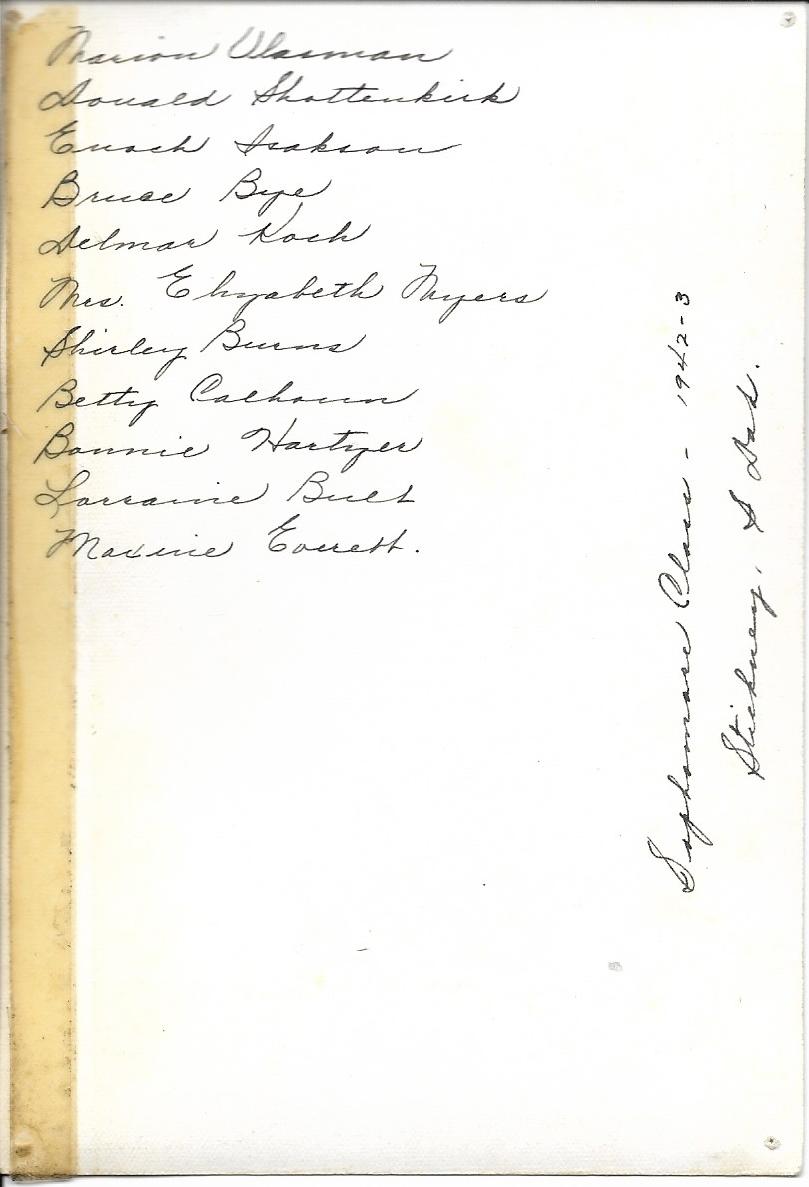 Marion Vlasman
Donald Shottenkirk
Enoch Isakson
Bruce Bye
Delmar Koch
Mrs. Elizabeth Myers
Shirley Burns
Betty Calhoun
Bonnie Hartzer
Lorraine Bult
Maxine Everett.
Sophomore Class - 1942-3
Stickney, S Dak.